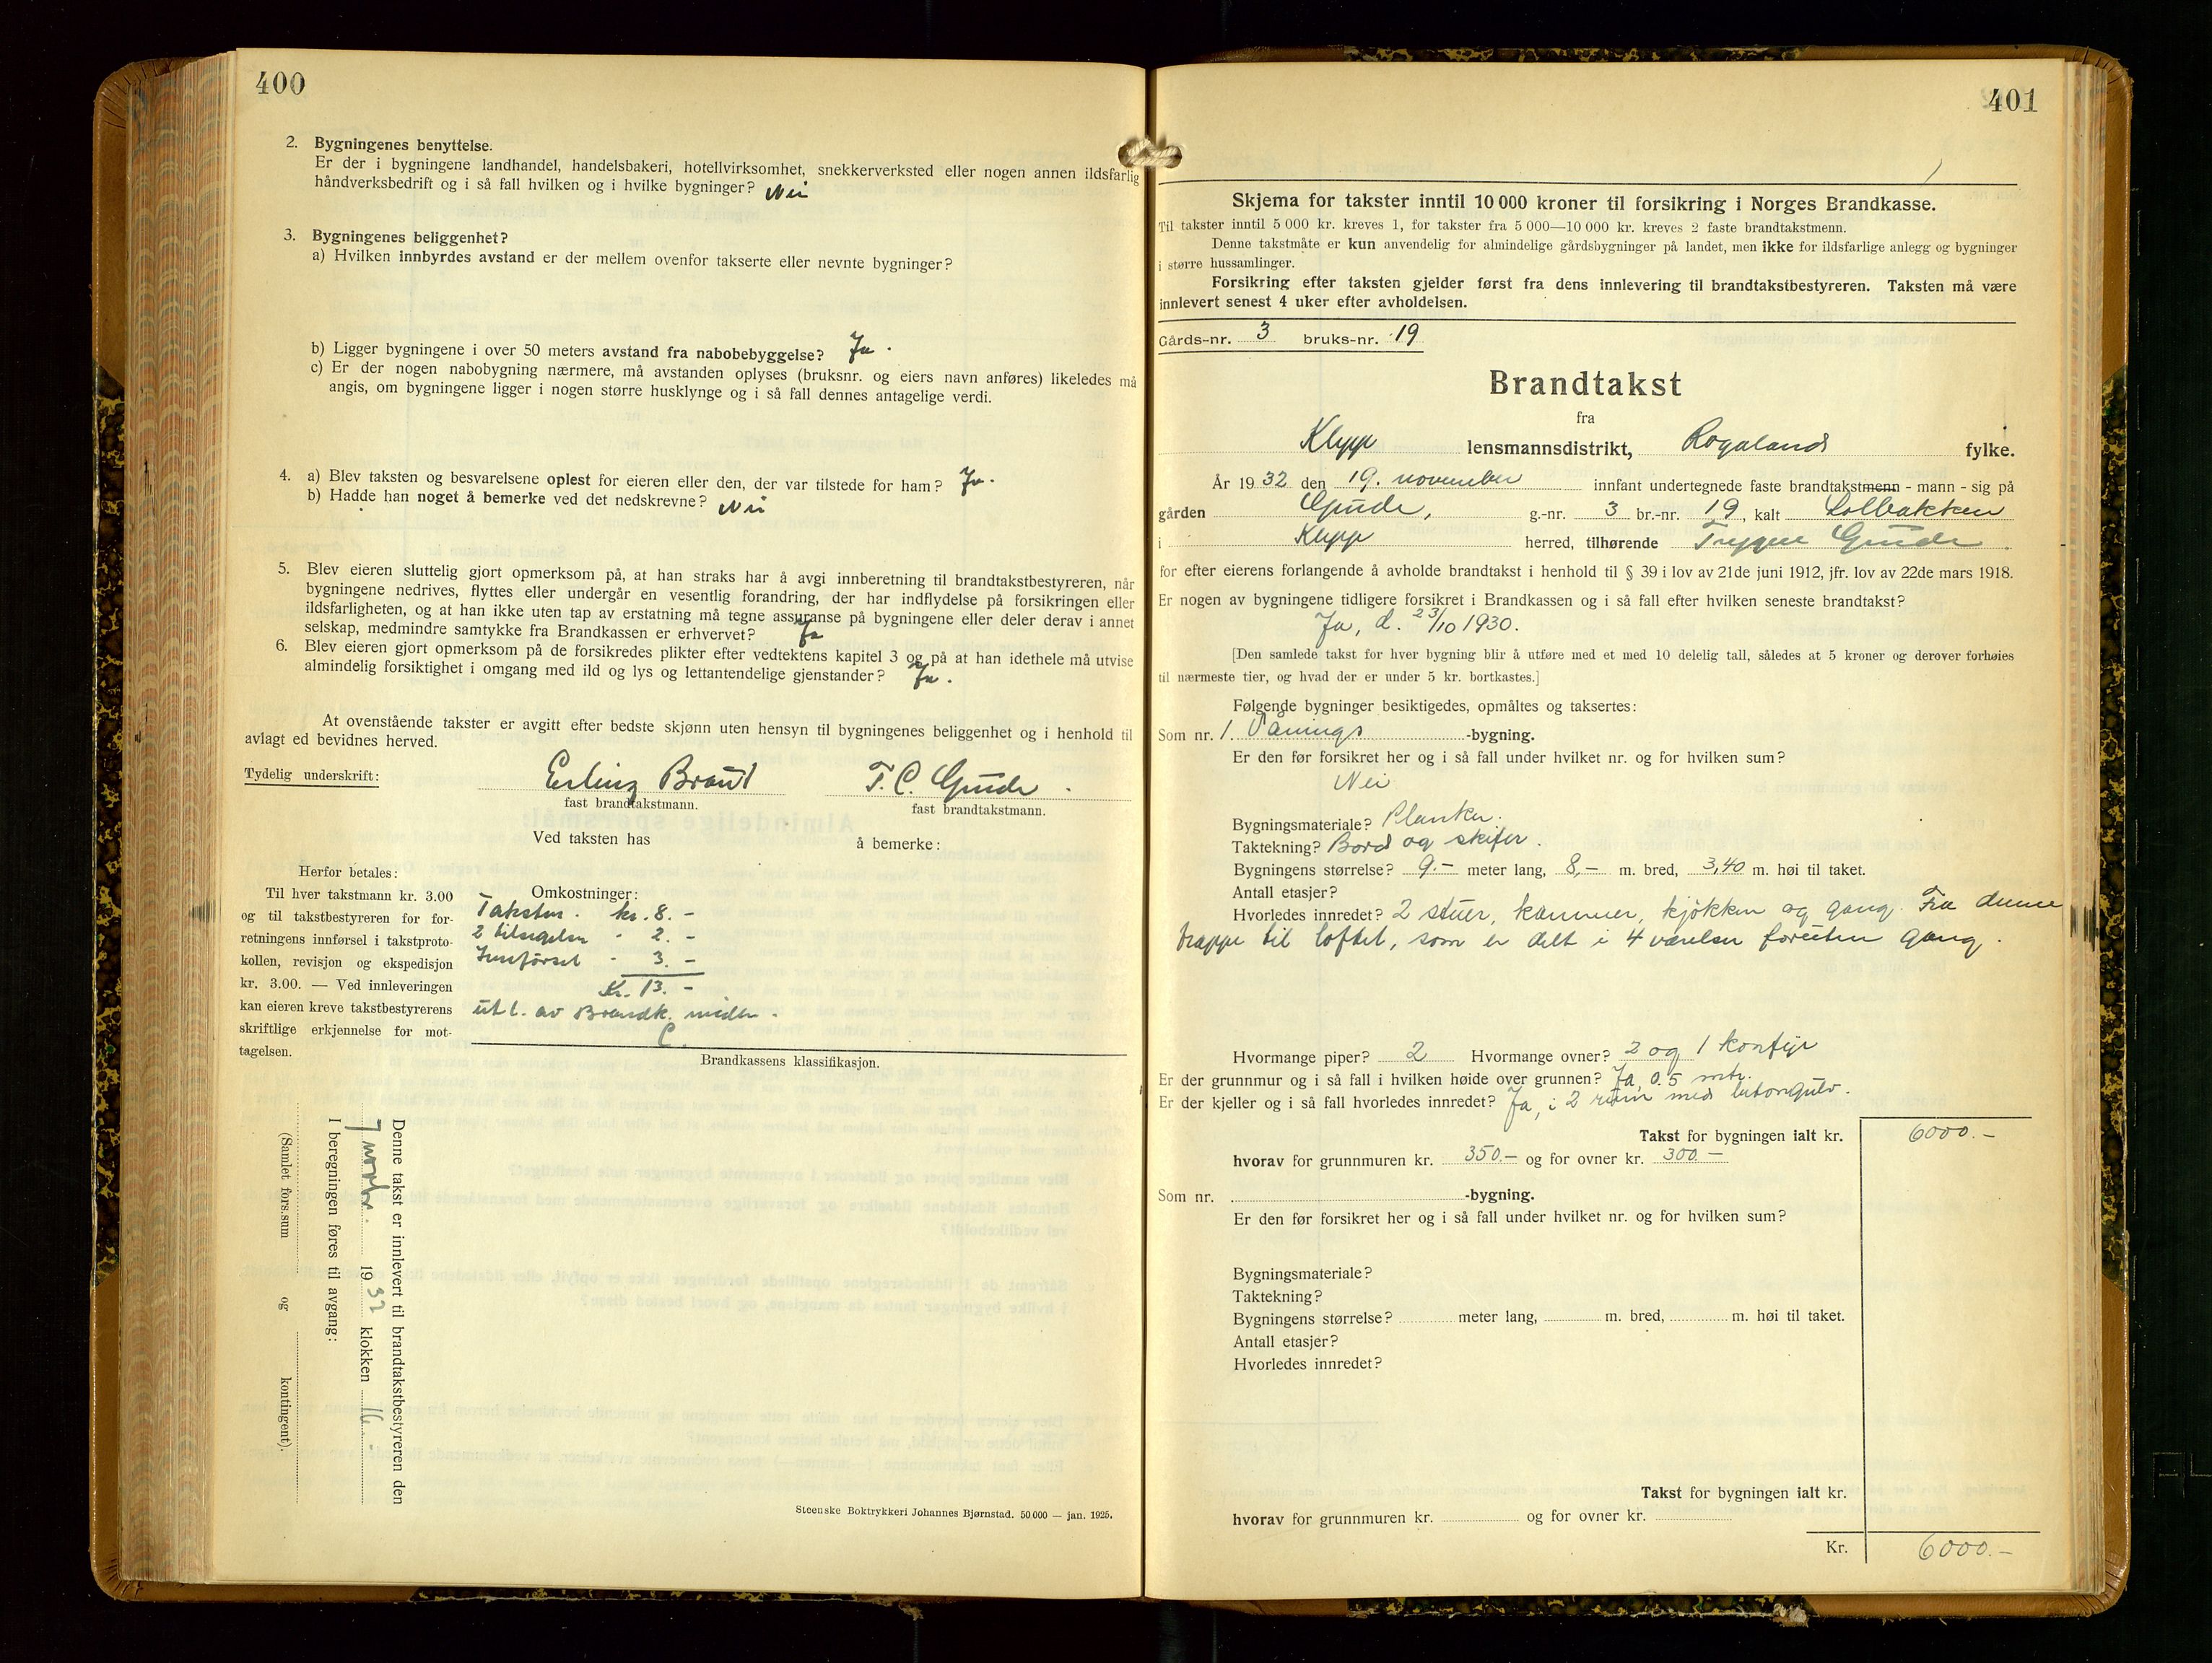 400
2. Bygningenes benyttelse.
Er der i bygningene landhandel, handelsbakeri, hotellvirksomhet, snekkerverksted eller nogen annen ildsfarlig
håndverksbedrift og i så fall hvilken og i hvilke bygninger? Nei
3. Bygningenes beliggenhet?
a) Hvilken innbyrdes avstand er der mellem ovenfor takserte eller nevnte bygninger?
b) Ligger bygningene i over 50 meters avstand fra nabobebyggelse? Ja.
c) Er der nogen nabobygning nærmere, må avstanden oplyses (bruksnr. og eiers navn anføres) likeledes må
angis, om bygningene ligger i nogen større husklynge og i så fall dennes antagelige verdi.
4. a) Blev taksten og besvarelsene oplest for eieren eller den, der var tilstede for ham? Ja.
b) Hadde han noget å bemerke ved det nedskrevne? Nei
5. Blev eieren sluttelig gjort opmerksom på, at han straks har å avgi innberetning til brandtakstbestyreren, når
bygningene nedrives, flyttes eller undergår en vesentlig forandring, der har indflydelse på forsikringen eller
ildsfarligheten, og at han ikke uten tap av erstatning må tegne assuranse på bygningene eller deler derav i annet
selskap, medmindre samtykke fra Brandkassen er erhvervet? Ja
6. Blev eieren gjort opmerksom på de forsikredes plikter efter vedtektens kapitel 3 og på at han idethele må utvise
almindelig forsiktighet i omgang med ild og lys og lettantendelige gjenstander? Ja.
At ovenstående takster er avgitt efter bedste skjønn uten hensyn til bygningenes beliggenhet og i henhold til
avlagt ed bevidnes herved.
Tydelig underskrift: Erling Braut T. C. Grude.
fast brandtakstmann. fast brandtakstmann.
Ved taksten has å bemerke:
Herfor betales:
Til hver takstmann kr. 3.00
og til takstbestyreren for for-
retningens innførsel i takstproto-
kollen, revisjon og ekspedisjon
kr. 3.00. — Ved innleveringen
kan eieren kreve takstbestyrerens
skriftlige erkjennelse for mot-
tagelsen.
Omkostninger:
Takstm. kr. 8.-
2 tilsigelse " 2.-
Innførsel " 3.-
Kr. 13.-
utl. av Brandk. midler.
C.
Brandkassens klassifikasjon.
Denne takst er innlevert til brandtakstbestyreren den
1932 klokken 16.
I beregningen føres til avgang:
(Samlet fors.sum og kontingent).
Steenske Boktrykkeri Johannes Bjørnstad. 50000 — jan. 1925.
401
Skjema for takster inntil 10 000 kroner til forsikring i Norges Brandkasse.
Til takster inntil 5 000 kr. kreves 1, for takster fra 5 000—10 000 kr. kreves 2 faste brandtakstmenn.
Denne takstmåte er kun anvendelig for almindelige gårdsbygninger på landet, men ikke for ildsfarlige anlegg og bygninger
i større hussamlinger.
Forsikring efter taksten gjelder først fra dens innlevering til brandtakstbestyreren. Taksten må være
innlevert senest 4 uker efter avholdelsen.
Gårds-nr. 3 bruks-nr. 19
Brandtakst
fra
Klepp lensmannsdistrikt, Rogalands fylke.
År 1932 den 19. november innfant undertegnede faste brandtakstmenn - mann - sig på
gården Grude, g.-nr. 3 br.-nr. 19, kalt Solbakken
i Klepp herred, tilhørende Trygve Grude.
for efter eierens forlangende å avholde brandtakst i henhold til § 39 i lov av 21de juni 1912, jfr. lov av 22de mars 1918.
Er nogen av bygningene tidligere forsikret i Brandkassen og i så fall efter hvilken seneste brandtakst?
Ja, d. 23/10 1930.
[Den samlede takst for hver bygning blir å utføre med et med 10 delelig tall, således at 5 kroner og derover forhøies
til nærmeste tier, og hvad der er under 5 kr. bortkastes.]
Følgende bygninger besiktigedes, opmåltes og taksertes:
Som nr. 1. Vånings-bygning.
Er den før forsikret her og i så fall under hvilket nr. og for hvilken sum?
Nei
Bygningsmateriale? Planker.
Taktekning? Bord og skifer.
Bygningens størrelse? 9.- meter lang, 8,- m. bred, 3,40 m. høi til taket.
Antall etasjer?
Hvorledes innredet? 2 stuer, kammer, kjøkken og gang. Fra denne
trappe til loftet, som er delt i 4 værelser foruten gang.
Hvormange piper? 2 Hvormange ovner? 2 og 1 komfyr
Er der grunnmur og i så fall i hvilken høide over grunnen? Ja, 0.5 mtr.
Er der kjeller og i så fall hvorledes innredet? Ja, i 2 rum med betongulv.
Takst for bygningen ialt kr. 6000.-
hvorav for grunnmuren kr. 350.- og for ovner kr. 300.-
Som nr. -bygning.
Er den før forsikret her og i så fall under hvilket nr. og for hvilken sum?
Bygningsmateriale?
Taktekning?
Bygningens størrelse? meter lang, m. bred, m. høi til taket.
Antall etasjer?
Hvorledes innredet?
Takst for bygningen ialt kr.
hvorav for grunnmuren kr. og for ovner kr.
Kr. 6000.-